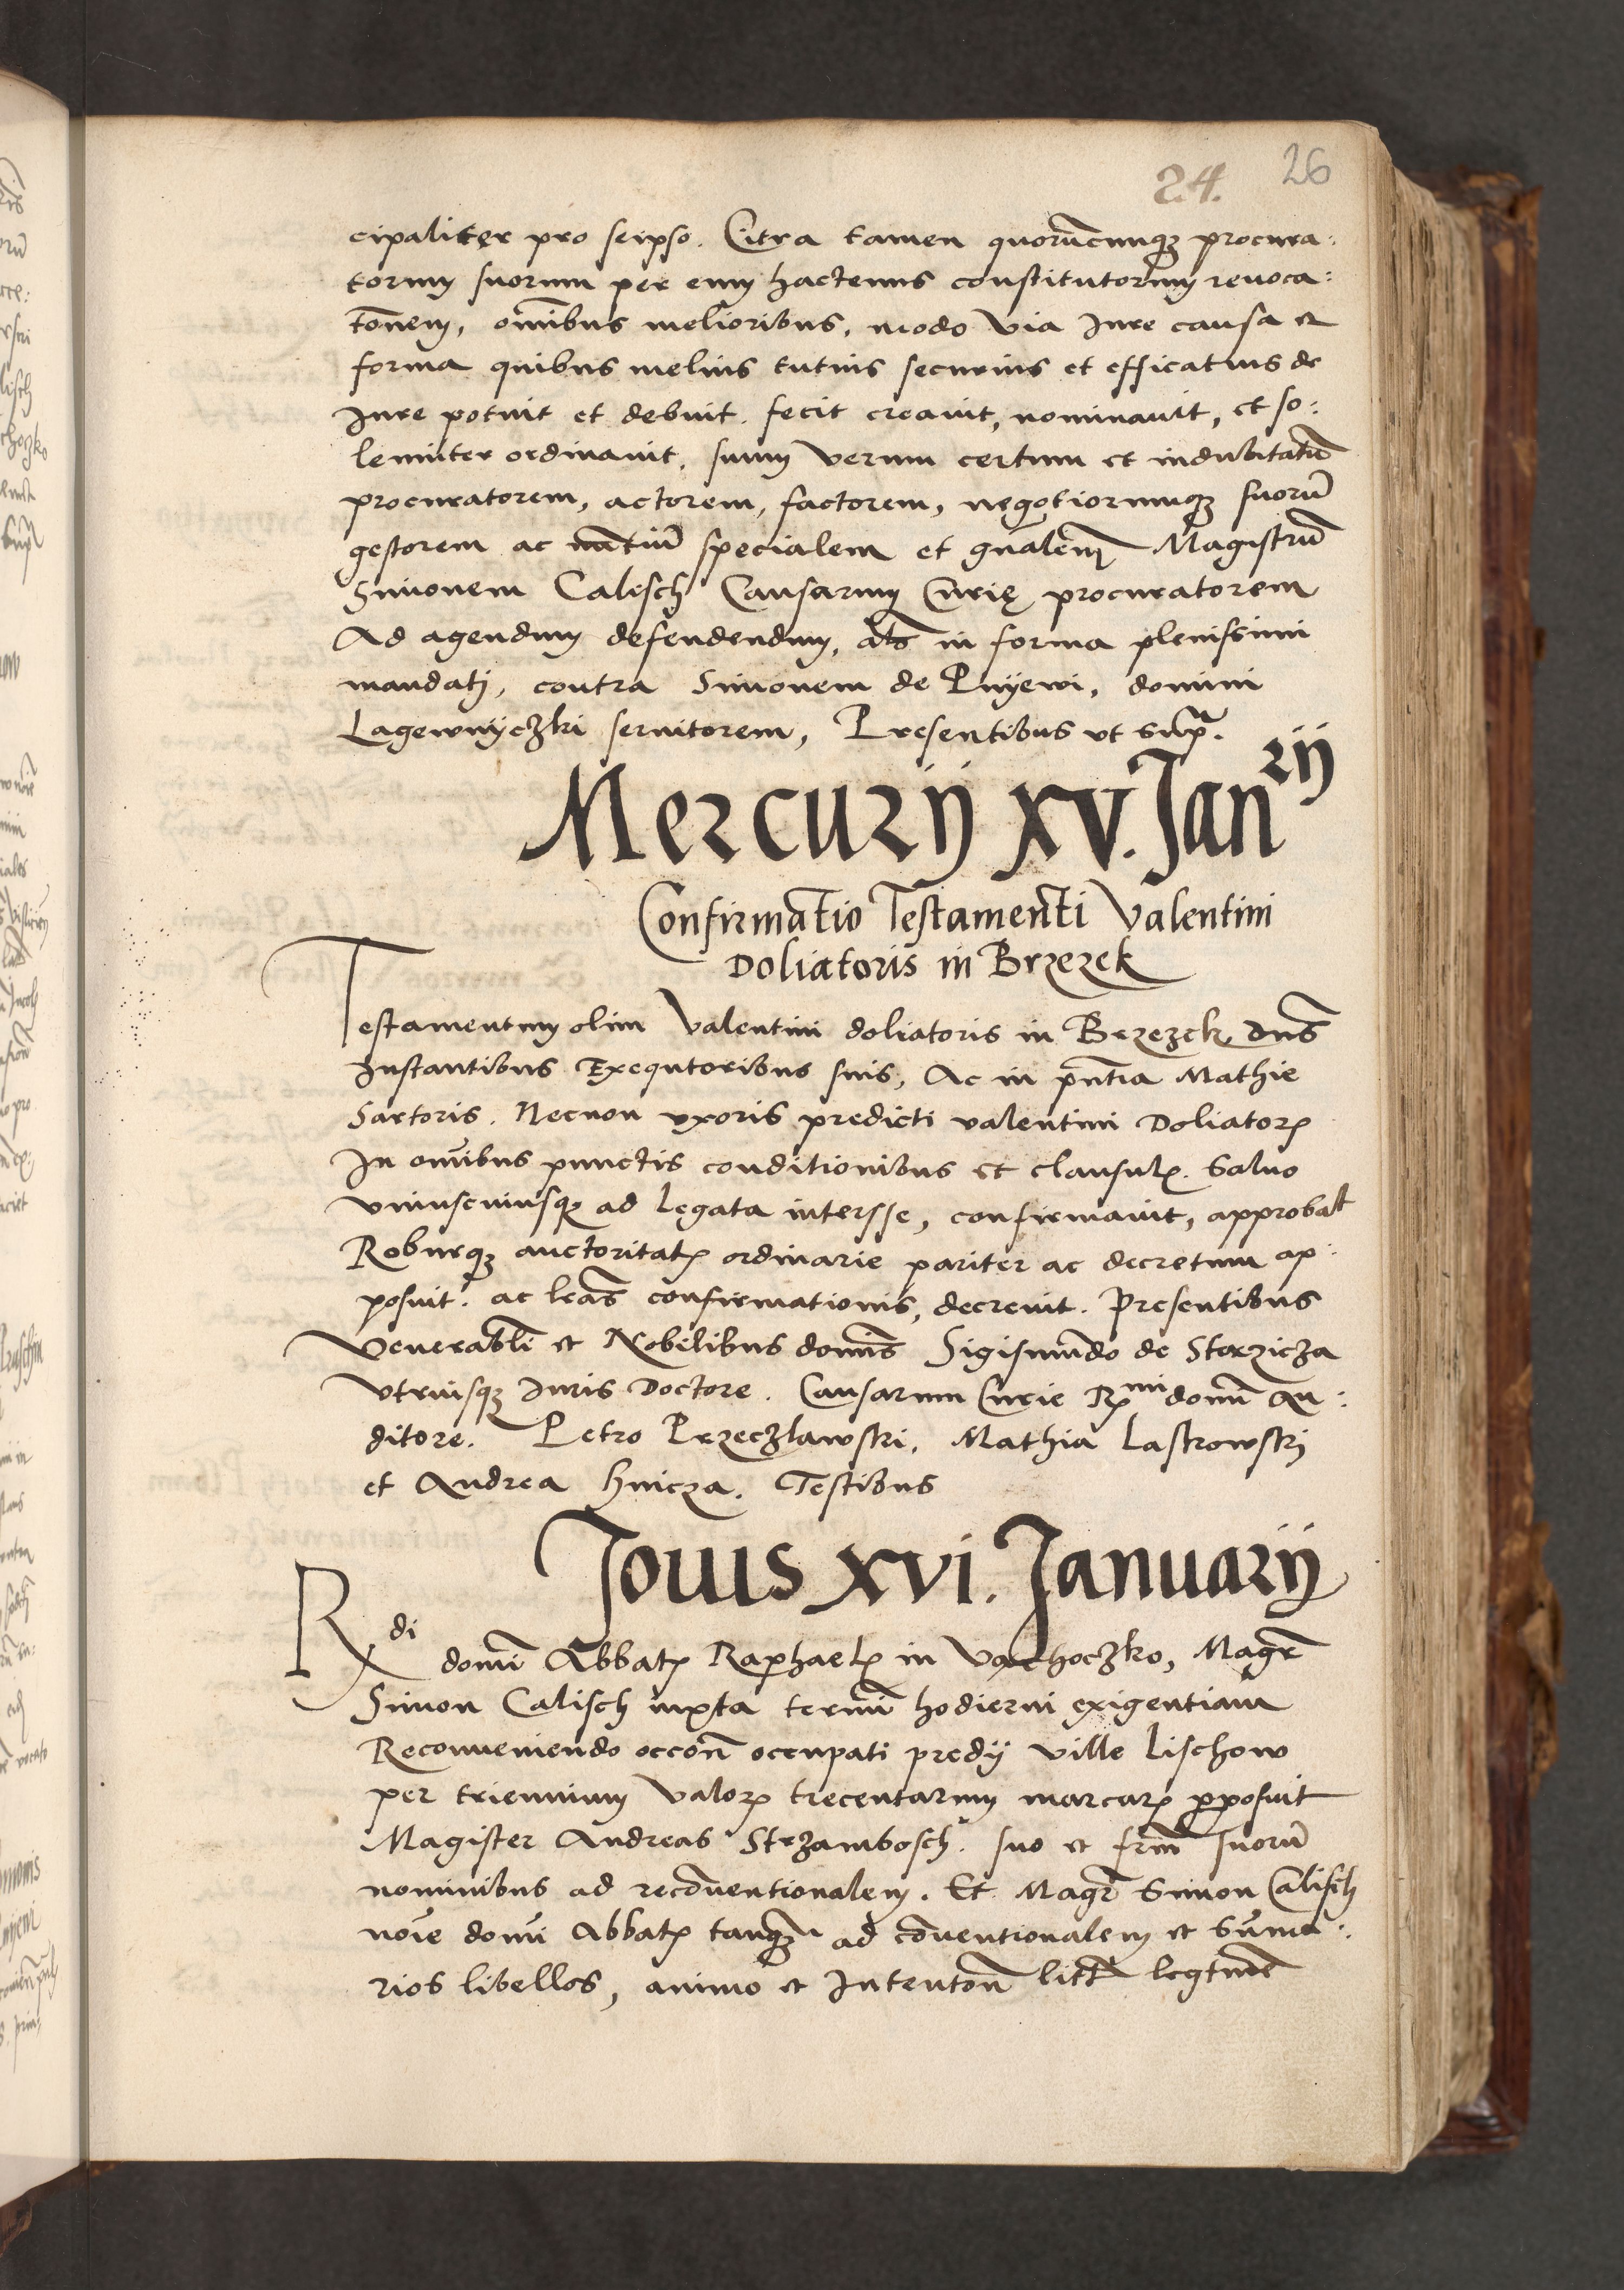 24. 26
cipaliter pro seipso. Citra tamen quorūcunqȝ procura:
torum suorum per eum hactenus constitutorum reuoca:
tōnem, omībus melioribus, modo via Jure causa et
forma quibus melius tutius securius et efficatius de
Jure potuit et debuit. fecit creauit, nominauit, et so:
lemniter ordinauit, suum verum certum et indubitatū
procuratorem, actorem, factorem, negotiorumqȝ suorū
gestorem ac nūtiū specialem et gnālem Magistrū
Simonem Calisch Causarum Curię procuratorem
Ad agendum defendendum, als in forma plenissimi
mandatj, contra Simonem de Pnyewi, domini
Lagewnyczki seruitorem, Presentibus ut supr.
Mercurij xv. Janrij
Confirmatio Testamenti Valentini
Doliatoris in Brzezek
Testamentum olim Valentini doliatoris in Brzezek, Dns
Instantibus Exequtoribus suis, Ac in pntia Mathie
Sartoris. Necnon vxoris predicti valentini Doliatorꝭ
In omībus punctis conditionibus et clausulꝭ. Saluo
vniuscuiusqȝ ad legata intersse, confirmauit, approbat
Roburqȝ auctoritatꝭ ordinarie pariter ac decretum ap:
posuit. ac lras confirmationis, decreuit. Presentibus
Venerabli et Nobilibus domīs Sigismūdo de Starzicza
vtriusqȝ Juris Doctore. Causarum Curie Rmi domī Au:
ditore. Petro Przeczlawski, Mathia Lastrowskj
et Andrea Hnicza. Testibus
Jouis xvi. Januarij
Rdi domī Abbatꝭ Raphaelꝭ in Vachoczko, Magr
Simon Calisch iuxta termī hodierni exigentiam
Reconueniendo occōn occupati predij ville Lischow
per triennium valorꝭ trecentarum marcarꝭ pposuit
Magister Andreas Strzambosch. suo et frm̄ suorū
nominibus ad recōuentionalem. Et Magr Simon Calisch
noīe domī Abbatꝭ tanqȝ ad cōuentionalem et Suma:
rios libellos, animo et Intentōn litē